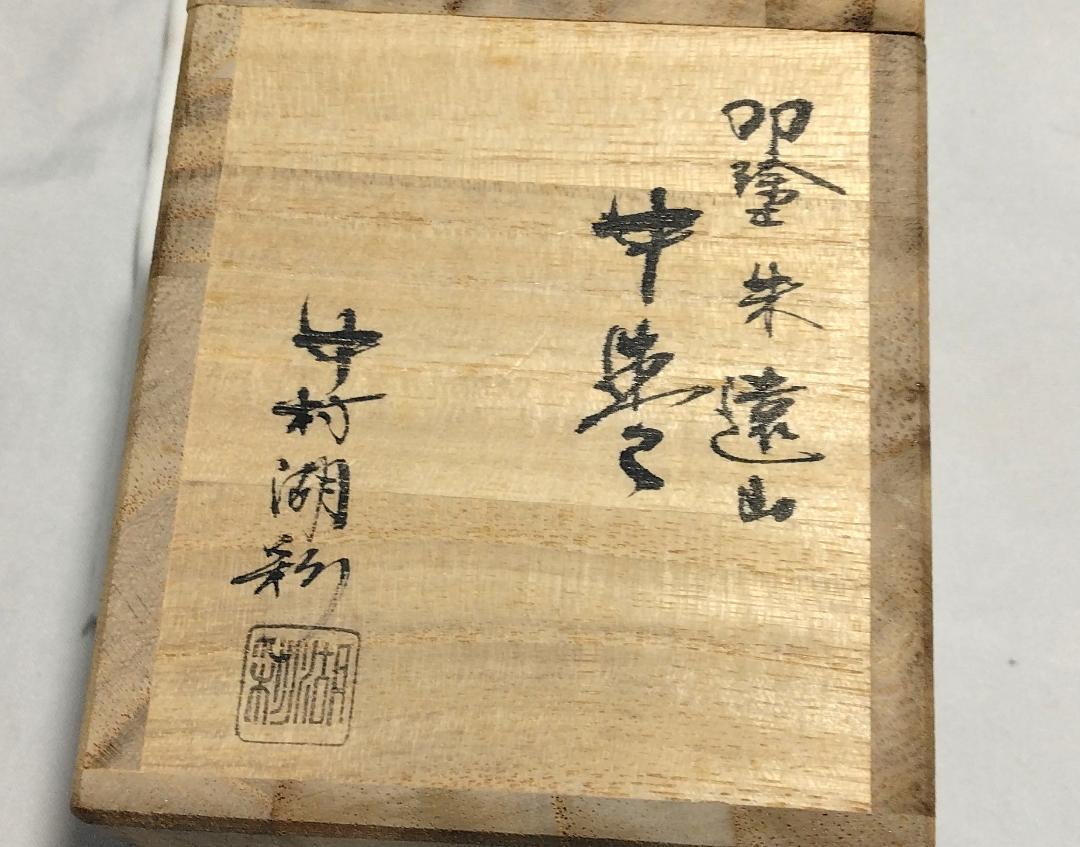 叩塗朱遠山
中棗
中村湖彩
湖彩